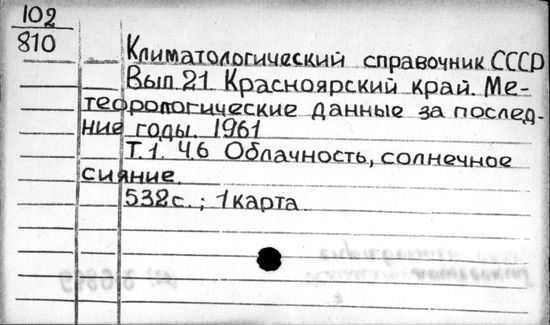 102
810
Климатологический справочник СССР
Вып.21. Красноярский край. Ме-
теорологические данные за послед-
ние годы. 1961
Т.1. Ч.6 Облачность, солнечное
сияние.
532с.; 1карта.